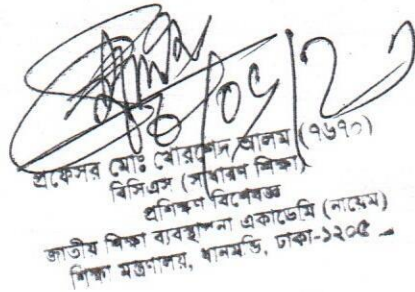 প্রফেসর মোঃ খোরশেদ আলম (৭৬৭০)
বিসিএস (সাধারণ শিক্ষা)
প্রশিক্ষণ বিশেষজ্ঞ
জাতীয় শিক্ষা ব্যবস্থাপনা একাডেমি (নায়েম)
শিক্ষা মন্ত্রণালয়, ধানমন্ডি, ঢাকা-১২০৫